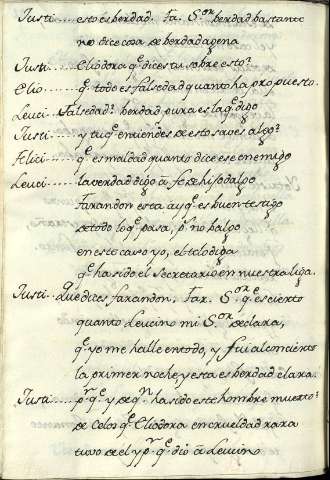 Justi...... esto es berdad. Fa. S.or berdad bastante
no dice cosa de berdad agena
Justi...... Eliodora q.e dices tu sobre esto?
Elio...... q.e todo es falsedad quanto ha propuesto.
Leuci.. falsedad? berdad pura es la q.e digo
Justi...... y tu q.e entiendes de esto saves algo?
Felici...... q.e es maldad quanto dice ese enemigo
Leuci...... la verdad digo â fe de hijodalgo
Farandon esta ay q.e es buen testigo
de todo lo q.e pasa, p.r no balgo
en este caso yo, el telo diga
q.e ha sido el secretario en nuestra liga.
Justi.. Que dices farandon. Far. S.or q.e es cierto
quanto Leucino mi S.or declara,
q.e yo me halle en todo, y fui al concierto
la primer noche, y esta es berdad clara.
Justi...... p.r q.e y de q.n ha sido este hombre muerto?
de Celos q.e Eliodora en crueldad rara
tuvo de el y p.r q.e dio â Leucino